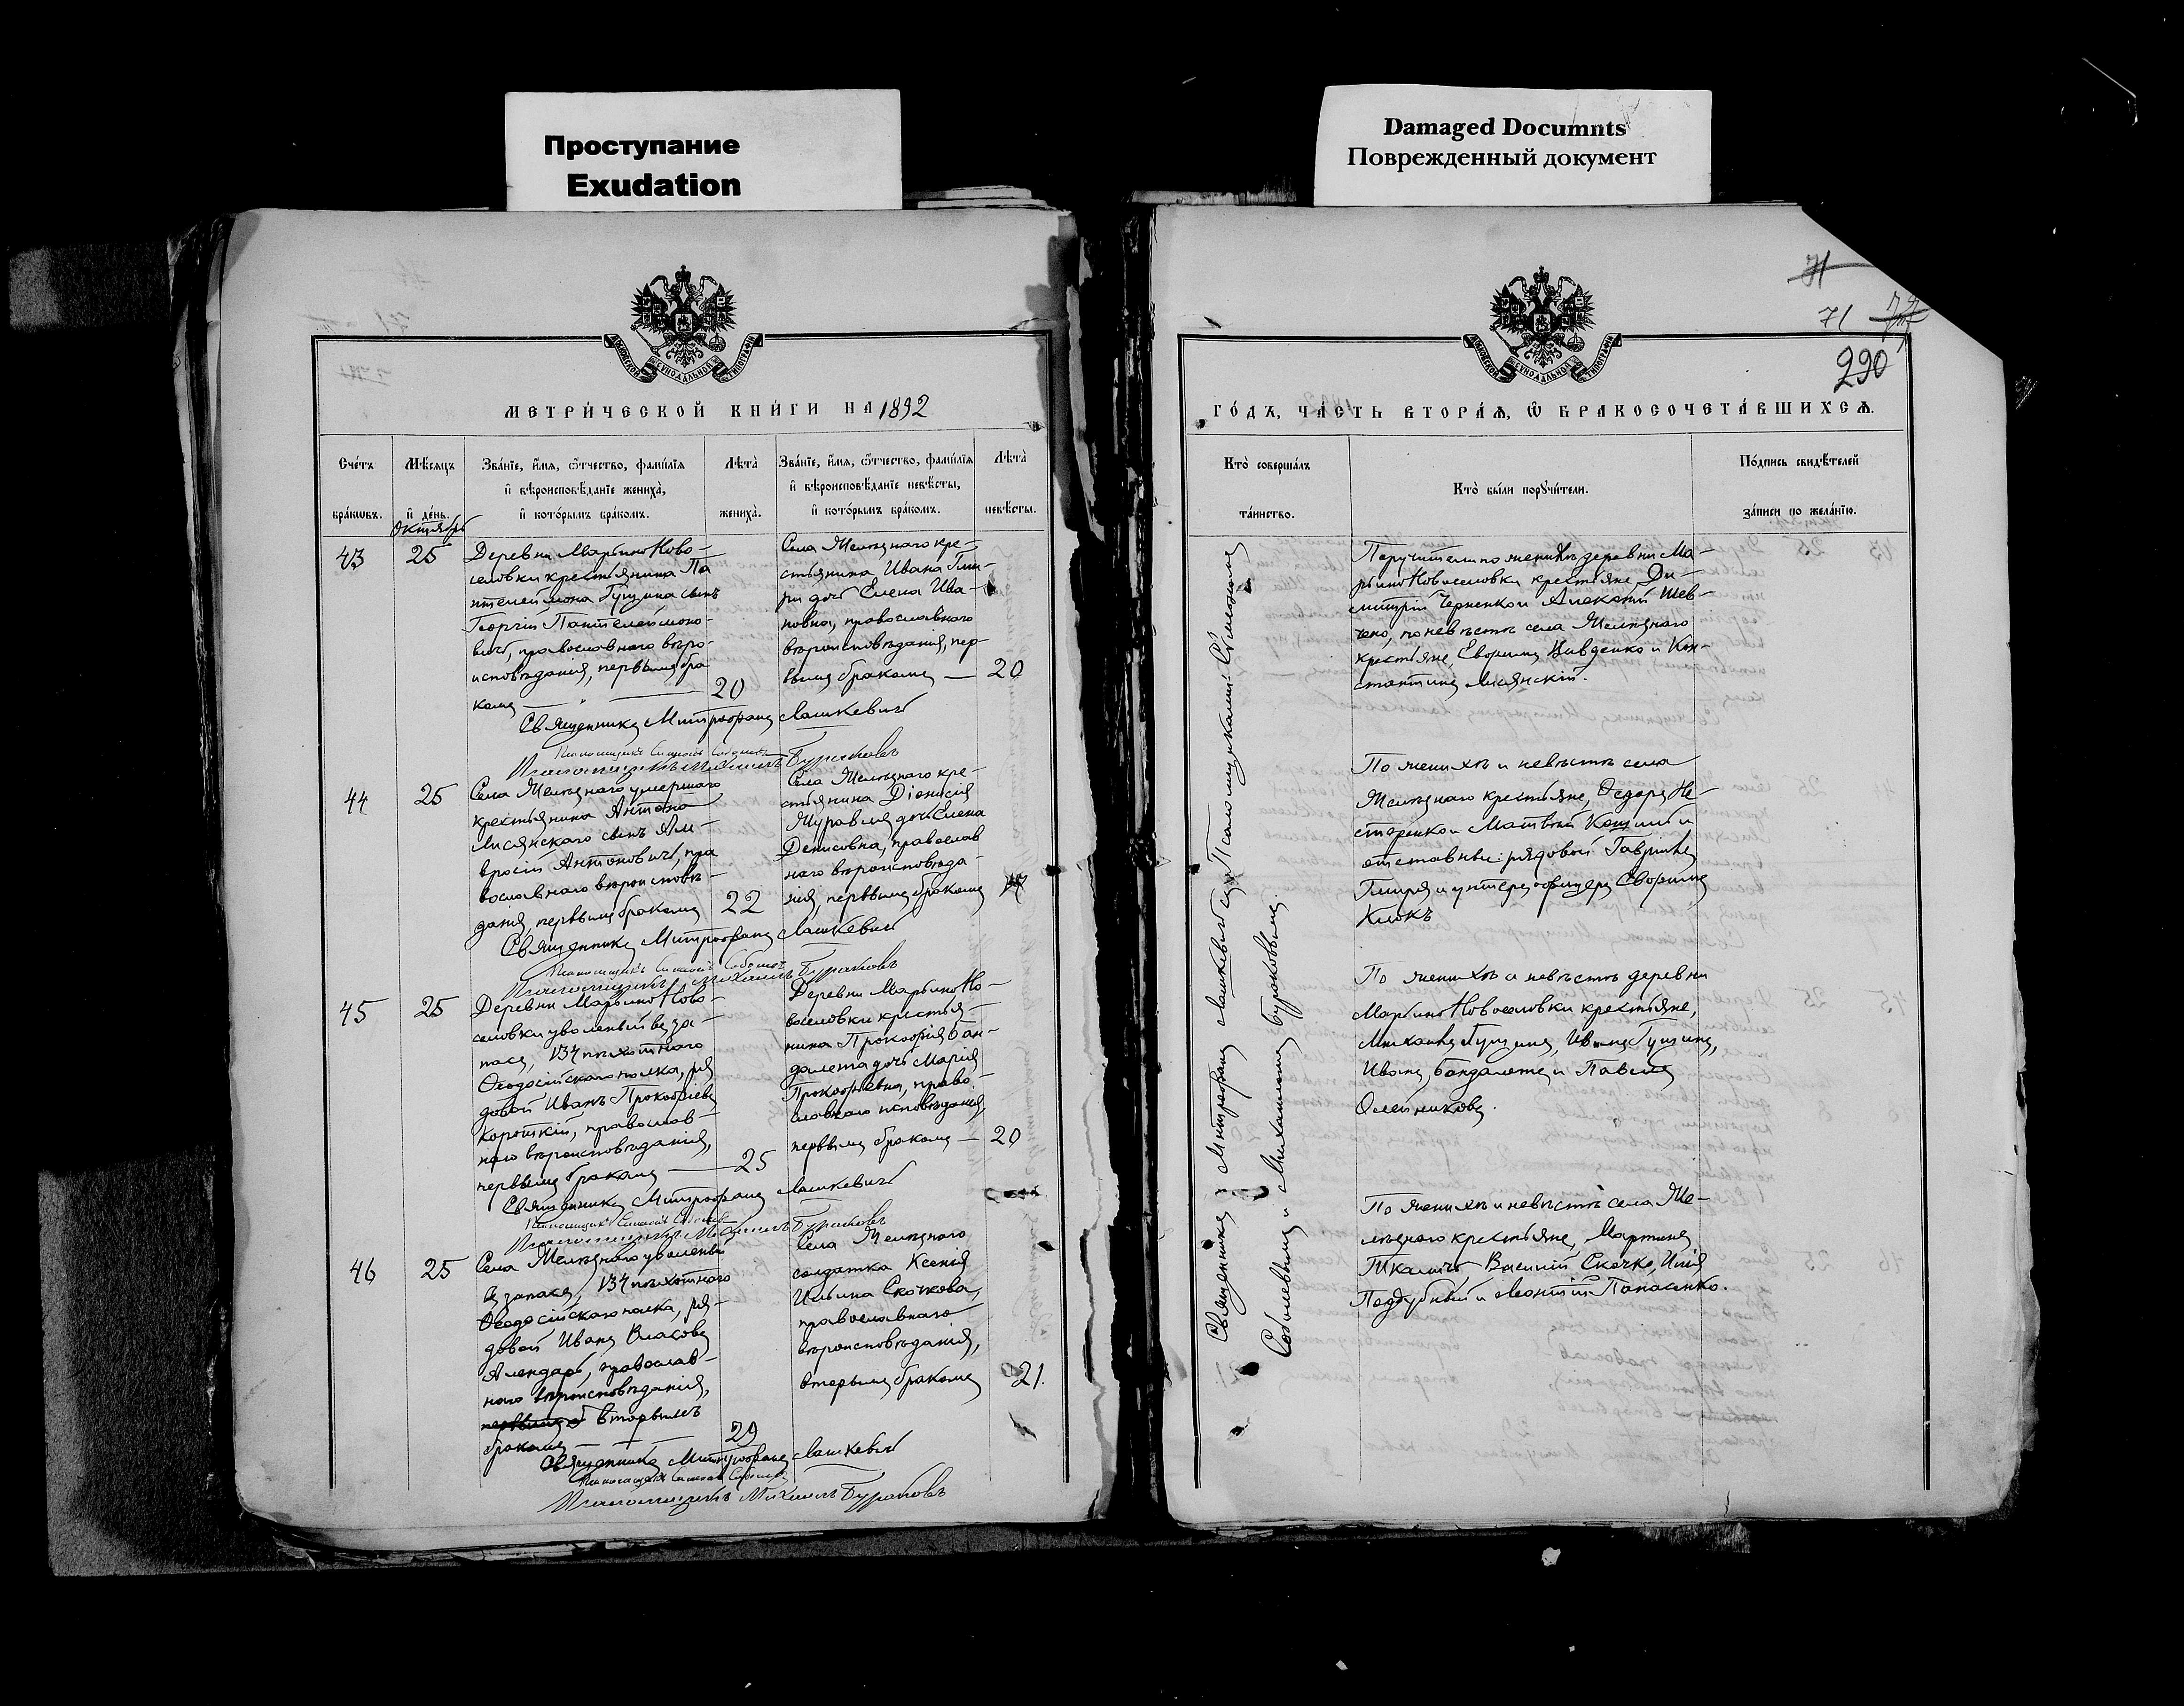 Проступание
Exudation
Damaged Documnts
Поврежденный документ
МЕТРИ́ЧЕСКОЙ КНИ́ГИ НА 1892
Сче́тъ бра́кѡвъ.
Мѣ́сяцъ и҆ де́нь.
Зва́нїе, и҆́мя, ѻ҆́тчество, фами́лїя
и҆ вѣроисповѣ́данїе жениха̀,
и҆ кото́рымъ бра́комъ.
Лѣта̀ жениха̀.
Зва́нїе, и҆́мя, ѻ҆́тчество, фами́лїя
и҆ вѣроисповѣ́данїе невѣ́сты,
и҆ кото́рымъ бра́комъ.
Лѣта̀ невѣ́сты.
Октябрь
43
25
Деревни Марьино Ново-
селовки крестьянина Па
нтелеймона Гущина сынъ
Георгій Пантелеймоно-
вичъ, православнаго вѣро-
исповѣданія, первымъ бра
комъ
20
Села Желѣзнаго кре-
стьянина Ивана Гми-
ри дочь Елена Ива-
новна, православнаго
вѣроисповѣданія, пер
вымъ бракомъ
20
Священникъ Митрофанъ Лашкевичъ
Псаломщикъ Симеонъ
Псаломщикъ Михаилъ Бураковъ
44
25
Села Желѣзнаго умершаго
крестьянина Антона
Лисянскаго сынъ Ам-
вросій Антоновичъ, пра
вославнаго вѣроисповѣ-
данія, первымъ бракомъ
22
Села Желѣзнаго кре-
стьянина Діонисія
Журавля дочь Елена
Денисовна, православ
наго вѣроисповѣда-
нія, первымъ бракомъ
Священникъ Митрофанъ Лашкевичъ
Псаломщикъ Симеонъ
Псаломщикъ Михаилъ Бураковъ
45
25
Деревни Марьино Ново-
селовки уволеный въ за-
пасъ, 134 пѣхотнаго
Ѳеодосійскаго полка, ря
довой Иванъ Прокофіевъ
Короткій, православ-
наго вѣроисповѣданія,
первымъ бракомъ
25
Деревни Марьино Но-
воселовки крестья-
нина Прокофія Бан-
далета дочь Марія
Прокофьевна, право-
славнаго исповѣданія,
первымъ бракомъ
20
Священникъ Митрофанъ Лашкевичъ
Псаломщикъ Симеонъ
Псаломщикъ Михаилъ Бураковъ
46
25
Села Желѣзнаго уволеный
въ запасъ, 134 пѣхотнаго
Ѳеодосійскаго полка, ря-
довой Иванъ Власовъ
православ-
наго вѣроисповѣданія,
первымъ вторымъ
бракомъ
29
Села Желѣзнаго
солдатка Ксенія
Ильина Скочкова,
православнаго
вѣроисповѣданія,
вторымъ бракомъ
21.
Священникъ Митрофанъ Лашкевичъ
Псаломщикъ Симеонъ
Псаломщикъ Михаилъ Бураковъ
71
71
290
ГО́ДЪ, ЧА́СТЬ ВТОРА́Я, Ѡ҆ БРАКОСОЧЕТА́ВШИХСЯ.
Кто̀ соверша́лъ
та́инство.
Кто̀ бы́ли порꙋчи́тели.
По́дпись свидѣ́телей
за́писи по жела́нїю.
Священникъ Митрофанъ Лашкевичъ съ Псаломщиками: Сѵмеономъ
Соболевымъ и Михаиломъ Бураковымъ.
Поручители по женихѣ деревни Ма-
рьино Новоселовки крестьяне, Ди-
митрій Черненко и Алексѣй Шев-
чено, по невѣстѣ села Желѣзнаго
крестьяне, Евфимъ Кон-
стантинъ Лисянскій.
По женихѣ и невѣстѣ села
Желѣзнаго крестьяне, Ѳедоръ Не-
стеренко и Матвѣй и
отставные: рядовой Гавріилъ
Гмиря и унтеръ-офицеръ Евфимъ
Клокъ
По женихѣ и невѣстѣ деревни
Марьино Новоселовки крестьяне,
Михаилъ Гущинъ, Иванъ Гущинъ,
Иванъ Бандалетъ и Павелъ
Олейниковъ.
По женихѣ и невѣстѣ села Же-
лѣзнаго крестьяне, Мартинъ
Ткаличъ Василій Скочко, Илія
Поддубный и Леонтій Панасенко.